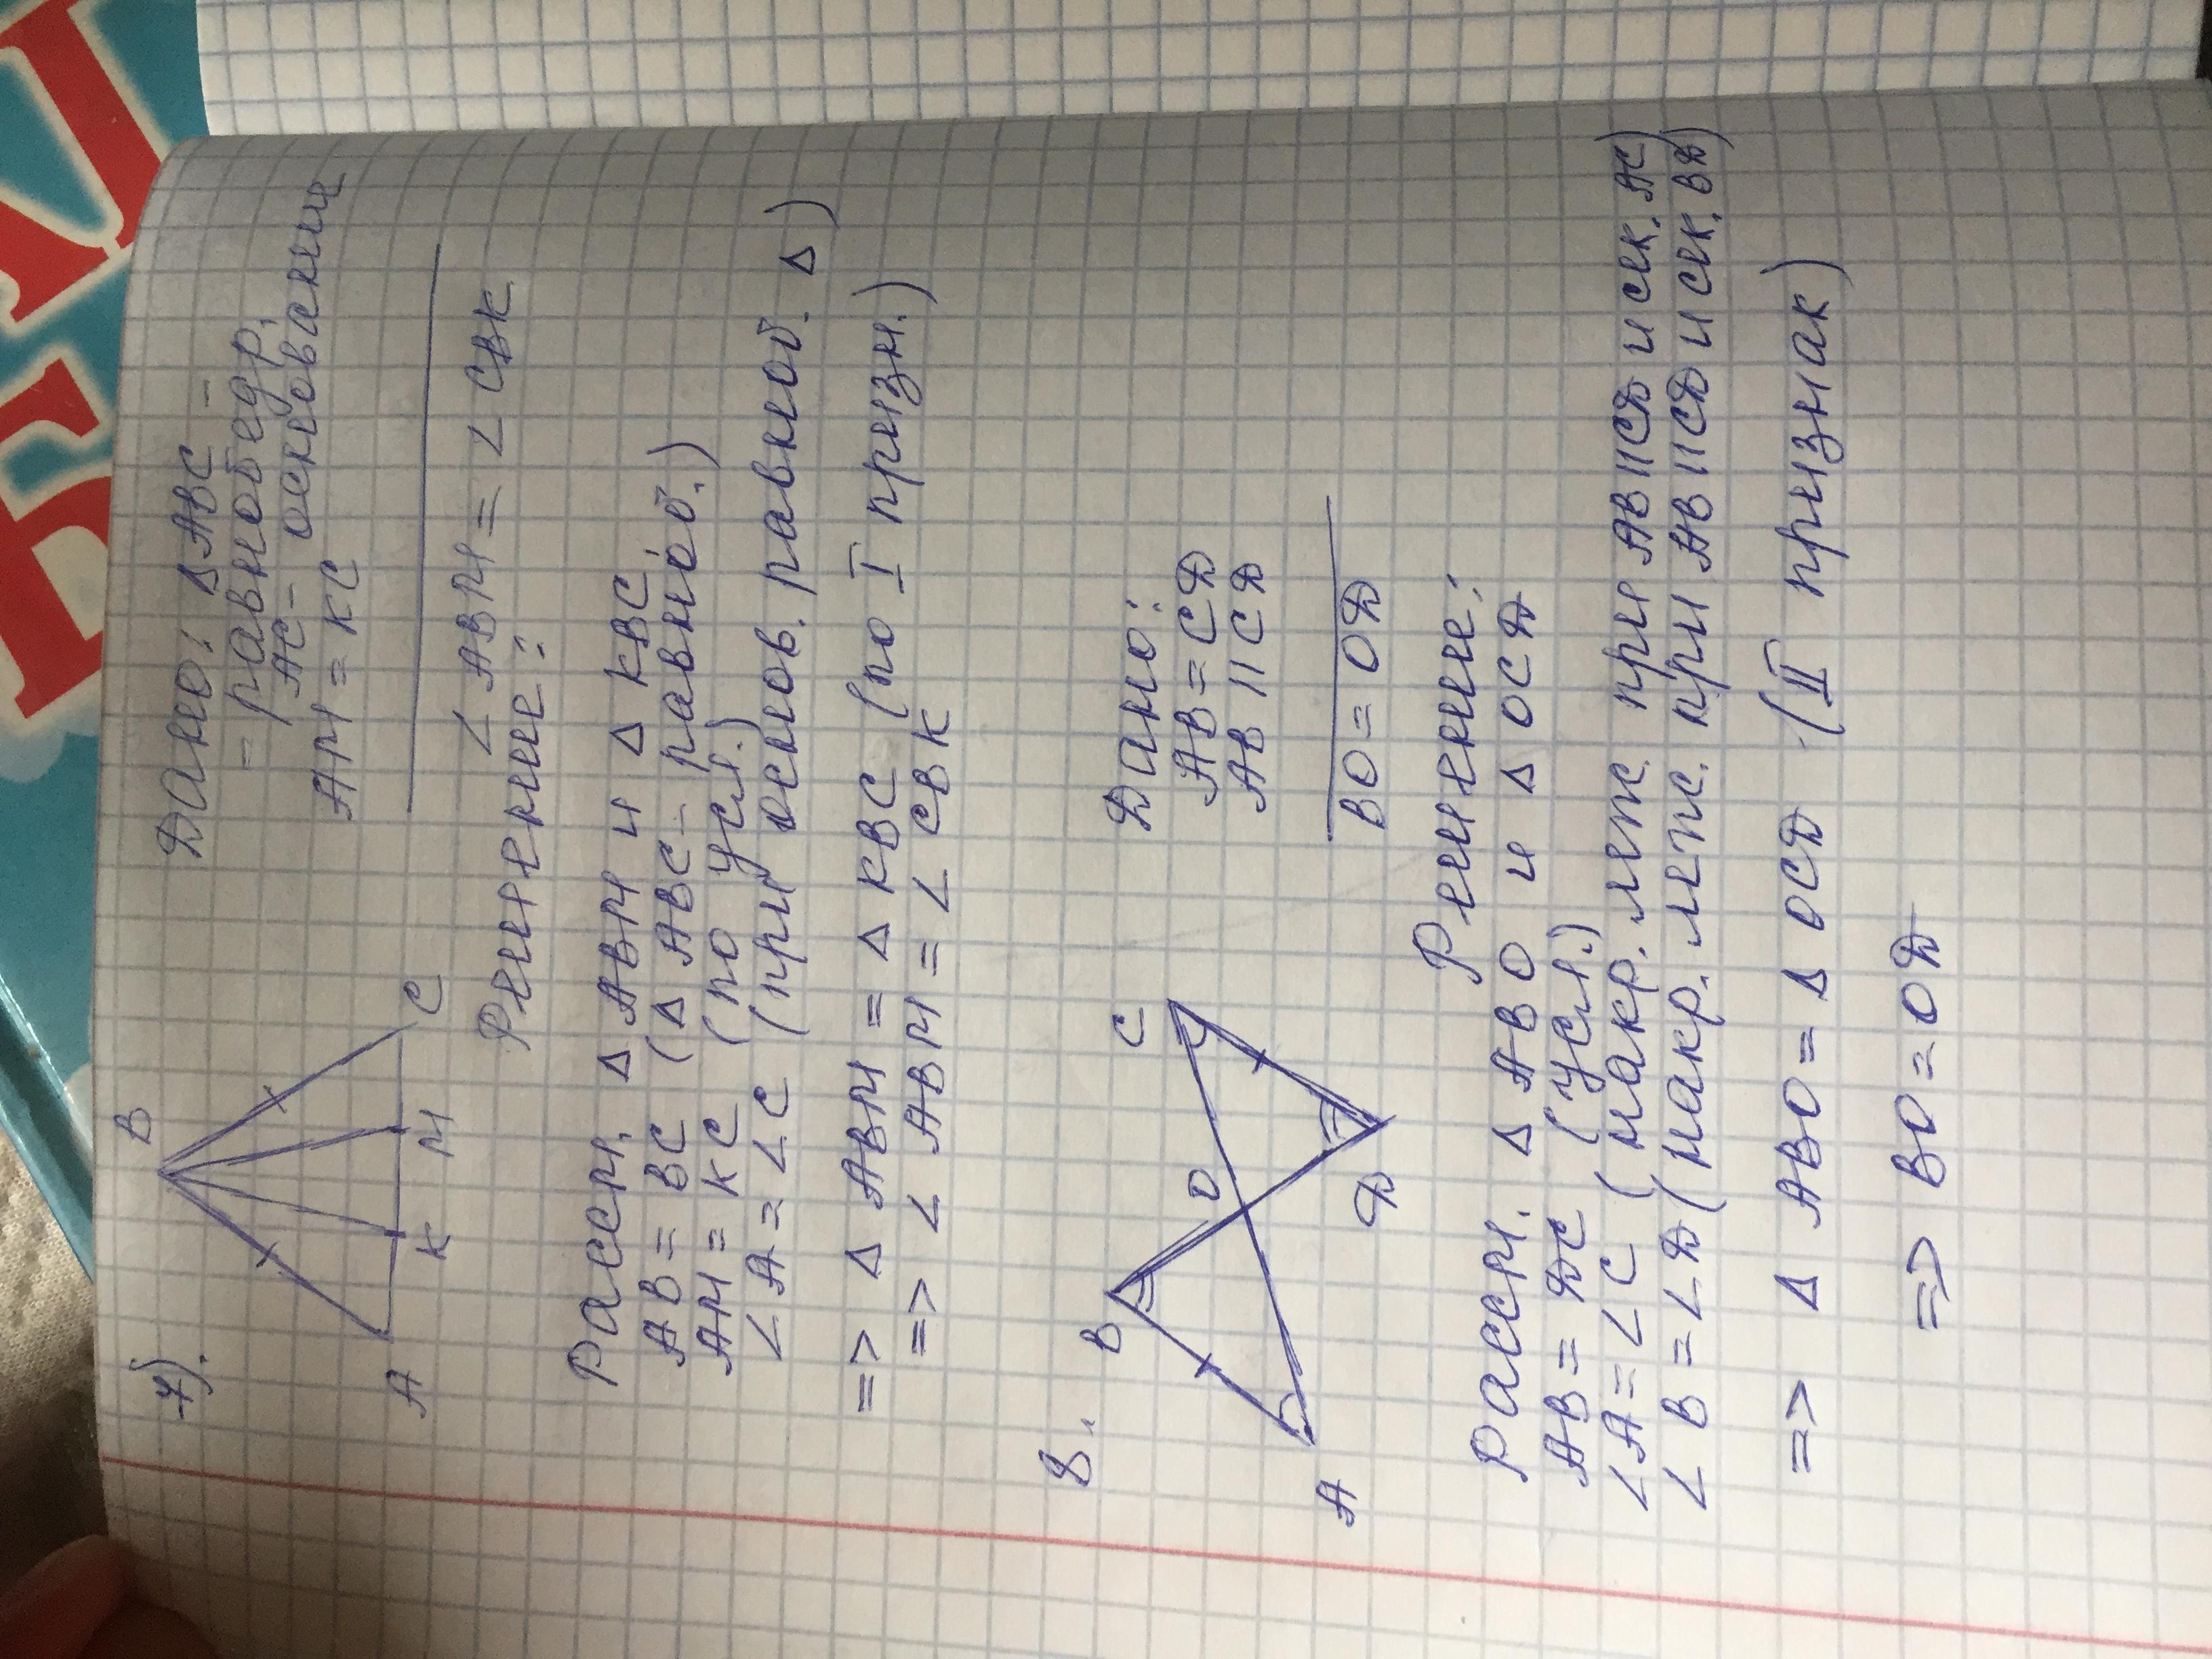 7).
B
A
K
M
C
Дано: Δ ABC –
– равнобедр.
AC – основание
AM = KC
∠ ABM = ∠ CBK
Решение:
Рассм. Δ ABM и Δ KBC
AB = BC (Δ ABC – равноб.)
AM = KC (по усл.)
∠ A = ∠ C (при основ. равноб. Δ)
=> Δ ABM = Δ KBC (по I призн.)
=> ∠ ABM = ∠ CBK
8.
B
C
O
A
Д
Дано:
AB = CД
AB || CД
BO = OД
Решение:
Рассм. Δ ABO и Δ OCД
AB = ДC (усл.)
∠A = ∠ C (накр. леж. при AB || CД и сек. AC)
∠ B = ∠ Д (накр. леж. при AB || CД и сек. BД)
=> Δ ABO = Δ OCД (II признак)
=> BO = OД